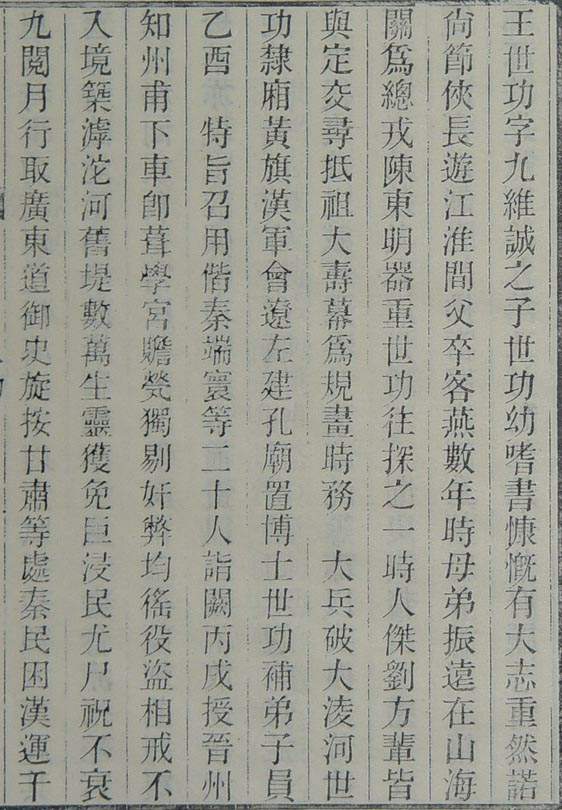 王世功字九維誠之子世功幼嗜書慷慨有大志重然諾
尙節俠長遊江淮間父卒客燕數年時母弟振遠在山海
關爲總戎陳東明器重世功往探之一時人傑劉方輩皆
與定交尋抵祖大壽幕爲規畫時務　大兵破大淩河世
功隸廂黃旗漢軍會遼左建孔廟置博士世功補弟子員
乙酉　特旨召用偕秦端寰等二十人詣闕丙戌授晉州
知州甫下車卽葺學宮贍煢獨剔奸弊均徭役盜相戒不
入境築滹沱河舊堤數萬生靈獲免巨浸民尤尸祝不衰
九閱月行取廣東道御史旋按甘肅等處秦民困漢運千